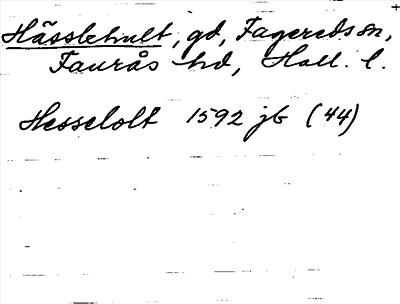 Hässlehult, gd, Fagereds sn,
Faurås hd, Hall. l.
Hesselolt 1592 jb (44)